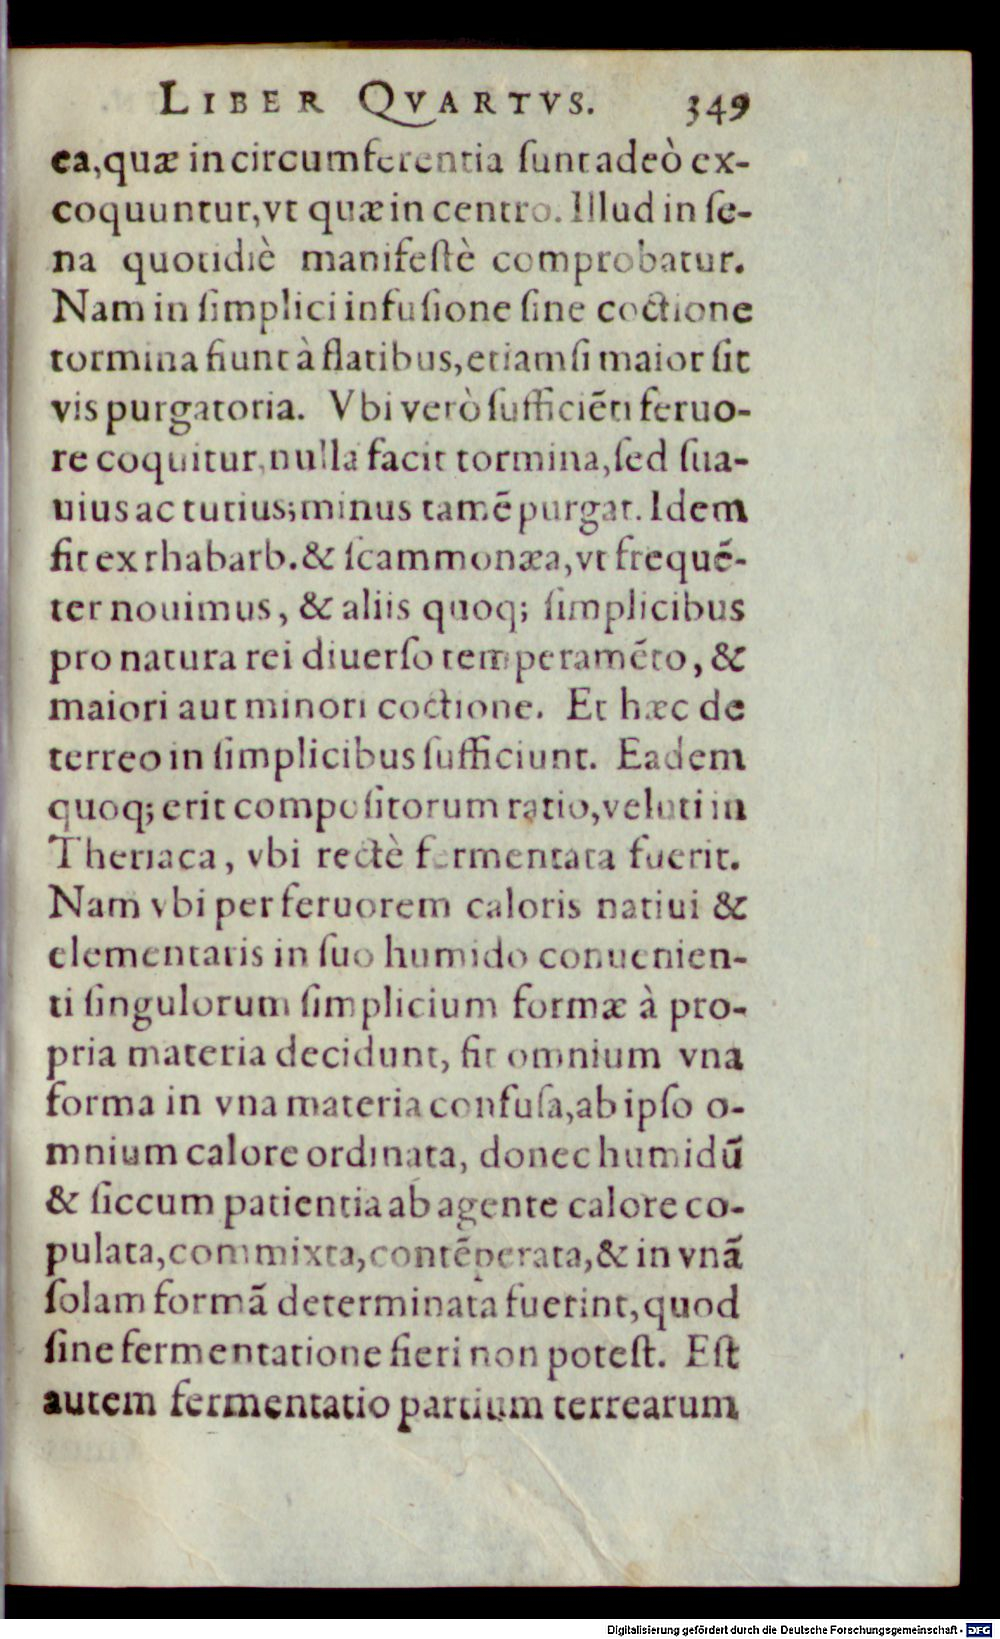 LIBER QVARTVS. 349
ea,quæ in circumferentia ſunt adeò ex-
coquuntur,vt quæ in centro. Illud in ſe-
na quotidiè manifeſtè comprobatur.
Nam in ſimplici infuſione ſine coctione
tormina fiunt à flatibus,etiamſi maior ſit
vis purgatoria. Vbi verò ſufficiẽti feruo-
re coquitur,nulla facit tormina,ſed ſua-
uius ac tutius;minus tamẽ purgat. Idem
fit ex rhabarb.& ſcammonæa,vt frequẽ-
ter nouimus, & aliis quoq; ſimplicibus
pro natura rei diuerſo temperamẽto, &
maiori aut minori coctione. Et hæc de
terreo in ſimplicibus ſufficiunt. Eadem
quoq; erit compoſitorum ratio,veluti in
Theriaca, vbi rectè fermentata fuerit.
Nam vbi per feruorem caloris natiui &
elementaris in ſuo humido conuenien-
ti ſingulorum ſimplicium formæ à pro-
pria materia decidunt, fit omnium vna
forma in vna materia confuſa,ab ipſo o-
mnium calore ordinata, donec humidũ
& ſiccum patientia ab agente calore co-
pulata,commixta,contẽperata,& in vnã
ſolam formã determinata fuerint,quod
ſine fermentatione fieri non poteſt. Eſt
autem fermentatio partium terrearum
Digitalisierung gefördert durch die Deutsche Forschungsgemeinschaft - DFG